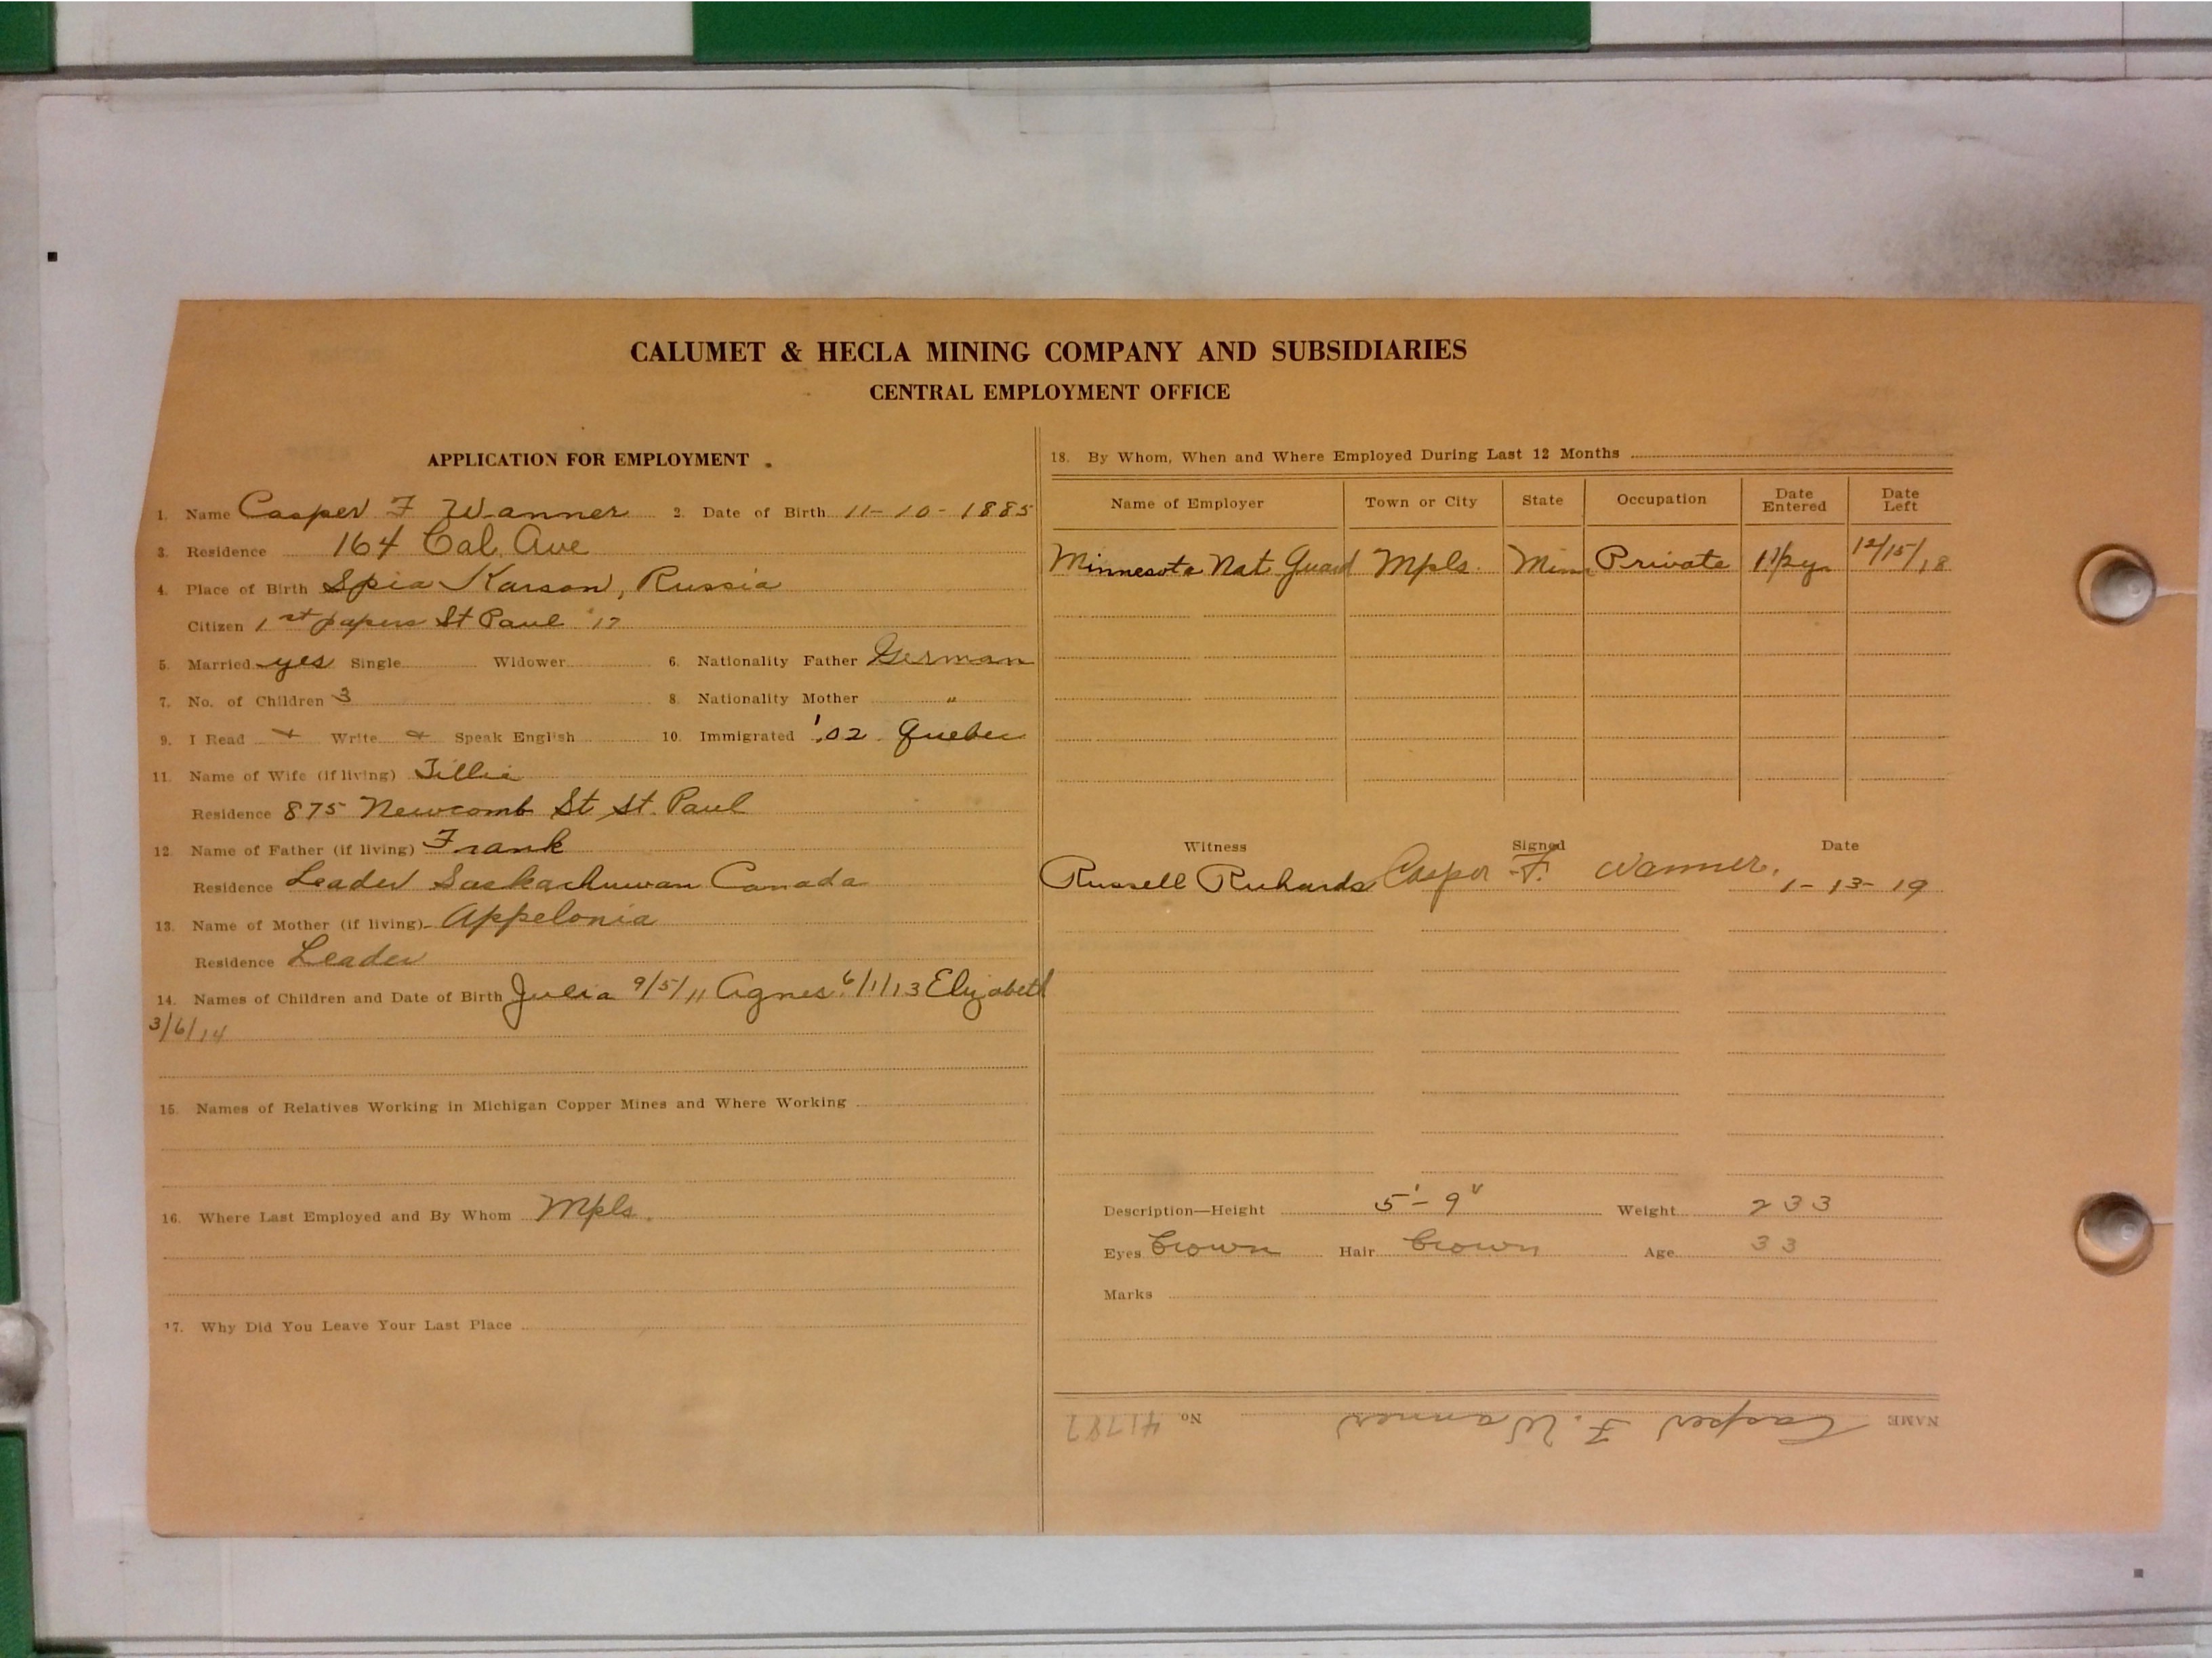 CALUMET & HECLA MINING COMPANY AND SUBSIDIARIES
CENTRAL EMPLOYMENT OFFICE
APPLICATION FOR EMPLOYMENT
1. Name Casper F Wanner 2. Date of Birth 11-10-1885
3. Residence 164 Cal. Ave
4. Place of Birth Spia Karson, Russia
Citizen 1st papers St Paul '17
5. Married yes Single Widower 6. Nationality Father German
7. No. of Children 3 8. Nationality Mother "
9. I Read Write Speak English 10. Immigrated '02 Quebec
11. Name of Wife (if living) Tillie
Residence 875 Newcomb St St. Paul
12. Name of Father (if living) Frank
Residence Leader Saskachuwan Canada
13. Name of Mother (if living) Appelonia
Residence Leader
14. Names of Children and Date of Birth Julia 9/5/11 Agnes 6/1/13 Elizabeth
3/6/14
15. Names of Relatives Working in Michigan Copper Mines and Where Working
16. Where Last Employed and By Whom Mpls.
17. Why Did You Leave Your Last Place
18. By Whom, When and Where Employed During Last 12 Months
Name of Employer Town or City State Occupation Date Entered Date Left
Minnesota Nat Guard Mpls. Minn Private 12/15/18
Witness Signed Date
Russell Richards Casper F. Wanner. 1-13-19
Description—Height 5'-9" Weight 233
Eyes brown Hair brown Age 33
Marks
NAME Casper F. Wanner No. 41787